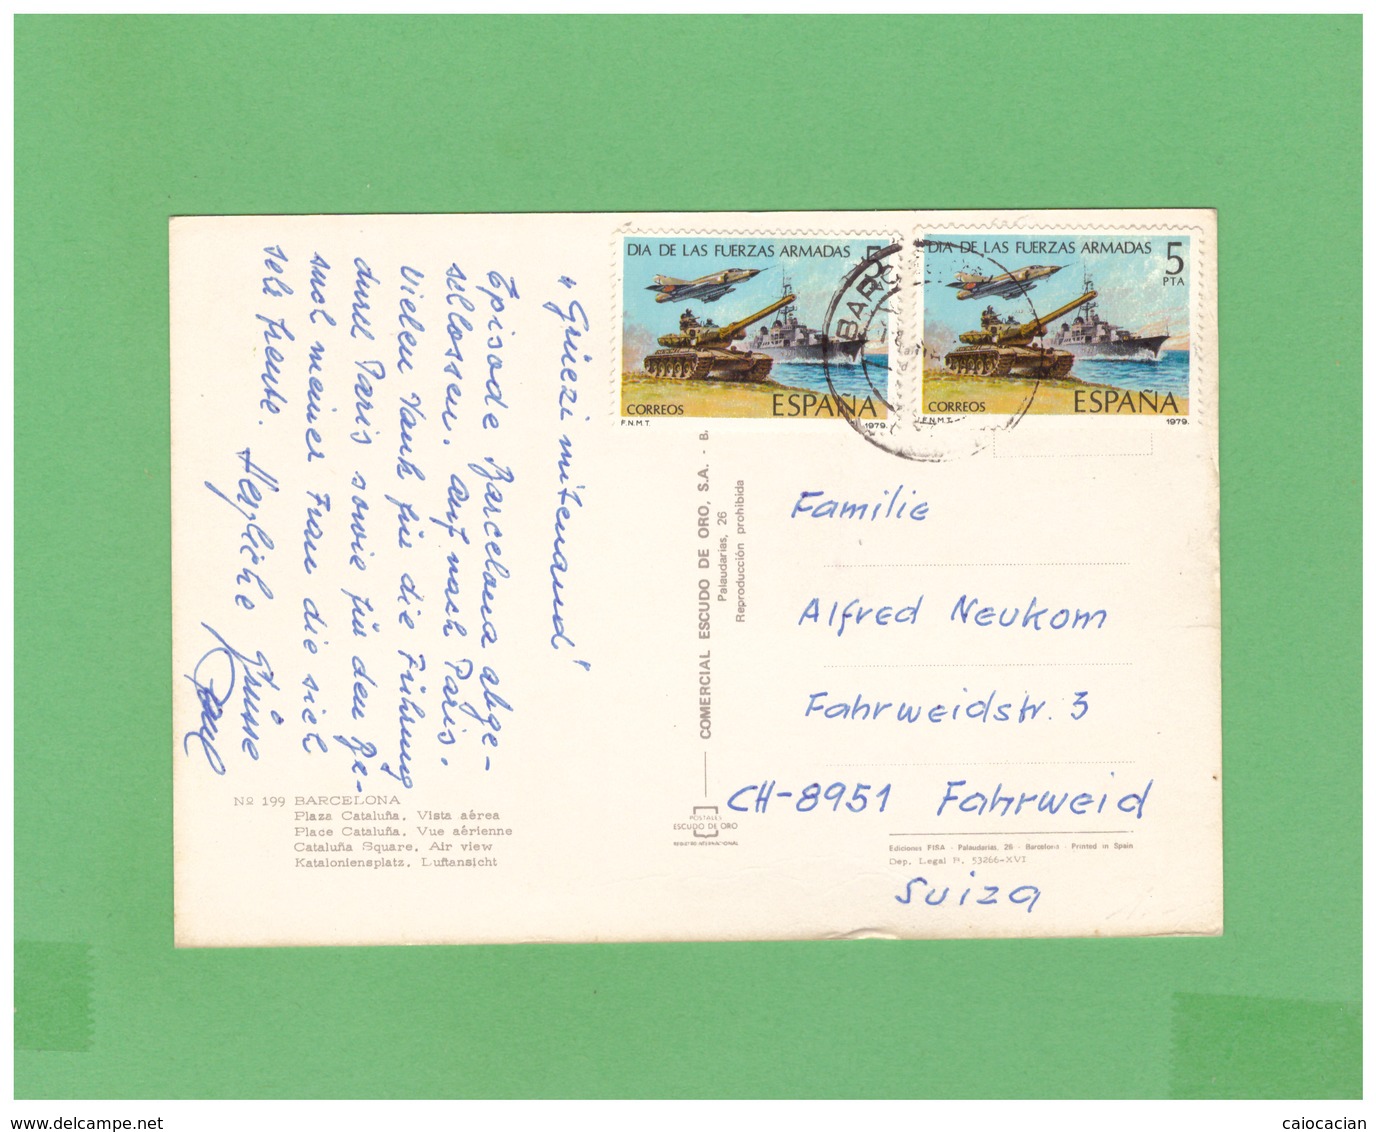 "Grüezi mitenand"
Episode Barcelona abge-
schlossen. Auf nach Paris.
Vielen Dank für die Führung
durch Paris sowie für den Be-
such meiner Frau die sich
sehr freute.
Herzliche Grüsse
DIA DE LAS FUERZAS ARMADAS 5
CORREOS ESPAÑA
F.N.M.T. 1979.
DIA DE LAS FUERZAS ARMADAS 5
PTA
CORREOS ESPAÑA
F.N.M.T. 1979.
BARC
COMERCIAL ESCUDO DE ORO, S.A. - B.
Palaudarias, 26
Reproducción prohibida
Familie
Alfred Neukom
Fahrweidstr. 3
CH-8951 Fahrweid
Suiza
Nº 199 BARCELONA
Plaza Cataluña. Vista aérea
Place Cataluña. Vue aérienne
Cataluña Square. Air view
Kataloniensplatz. Luftansicht
POSTALES
ESCUDO DE ORO
REGISTRO INTERNACIONAL
Ediciones FISA - Palaudarias, 26 - Barcelona - Printed in Spain
Dep. Legal B. 53266-XVI
delcampe.net
caiocacian